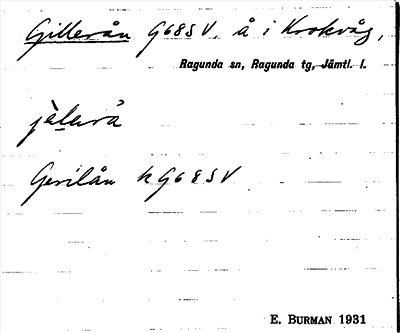 Gillerån G68SV, å i Krokvåg,
Ragunda sn, Ragunda tg, Jämtl. l.
jèlarå
Gerilån k G68SV
E. BURMAN 1931